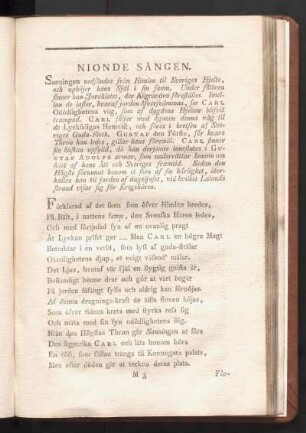 NIONDE SÅNGEN.
Sanningen nedsändes från Himlen til Sveriges Hjelte,
och uphöjer hans Själ i sin famn. Under flårren
synes han Jordklotet, der Afgrunden föreställes. Imel-
lan de laster, hvaraf jorden öfversvämmas, ser CARL
Odödlighetens väg, som af dygdens Hjeltar blifvit
trampad. CARL följer med ögonen denna väg til
de Lyckseligas Hemvist, och föres i kretsen af Sve-
riges Guda-Flock. GUSTAF den Förste, för hvars
Thron han ledes, gillar hans föremål. CARL finner
sin önskan upfyld, då han derjemte inneslutes i Gu-
STAF ADOLFS armar, som underrättar honom om
ödet af hans Ätt och Sveriges framtid. Sedan den
Högste förunnat honom et sken af sin härlighet, åter-
kallas han til jorden af dagsljuset, vid hvilket Lalands
strand visar sig för Krigshären.
Förklarad af det sken som öfver Himlen bredes,
På Bält, i nattens famn, den Svenska Hären ledes,
Och med förtjusad syn af en uvanlig pragt
Åt Lyckan priset ger ... Men CARL en högre Magt
Betraktar i en verld, som lyft af guda-strålar
Odödlighetens djup, et evigt väsend' målar.
Det Ljus, hvaraf vår själ en flygtig gnista är,
Beständigt henne drar och gör at vårt begär
På jorden fåfängt fylls och aldrig kan förnöjas.
Af denna dragnings-kraft de ädla sinnen höjas,
Som öfver tidens krets med styrka resa sig
Och möta med sin syn odödlighetens stig.
Från den Högstas Thron går Sanningen at föra
Den segerrika CARL och låts honom höra
En röst, som sällan trängt til Konungars palats,
Men efter döden går at teckna deras plats.
M 3
För-